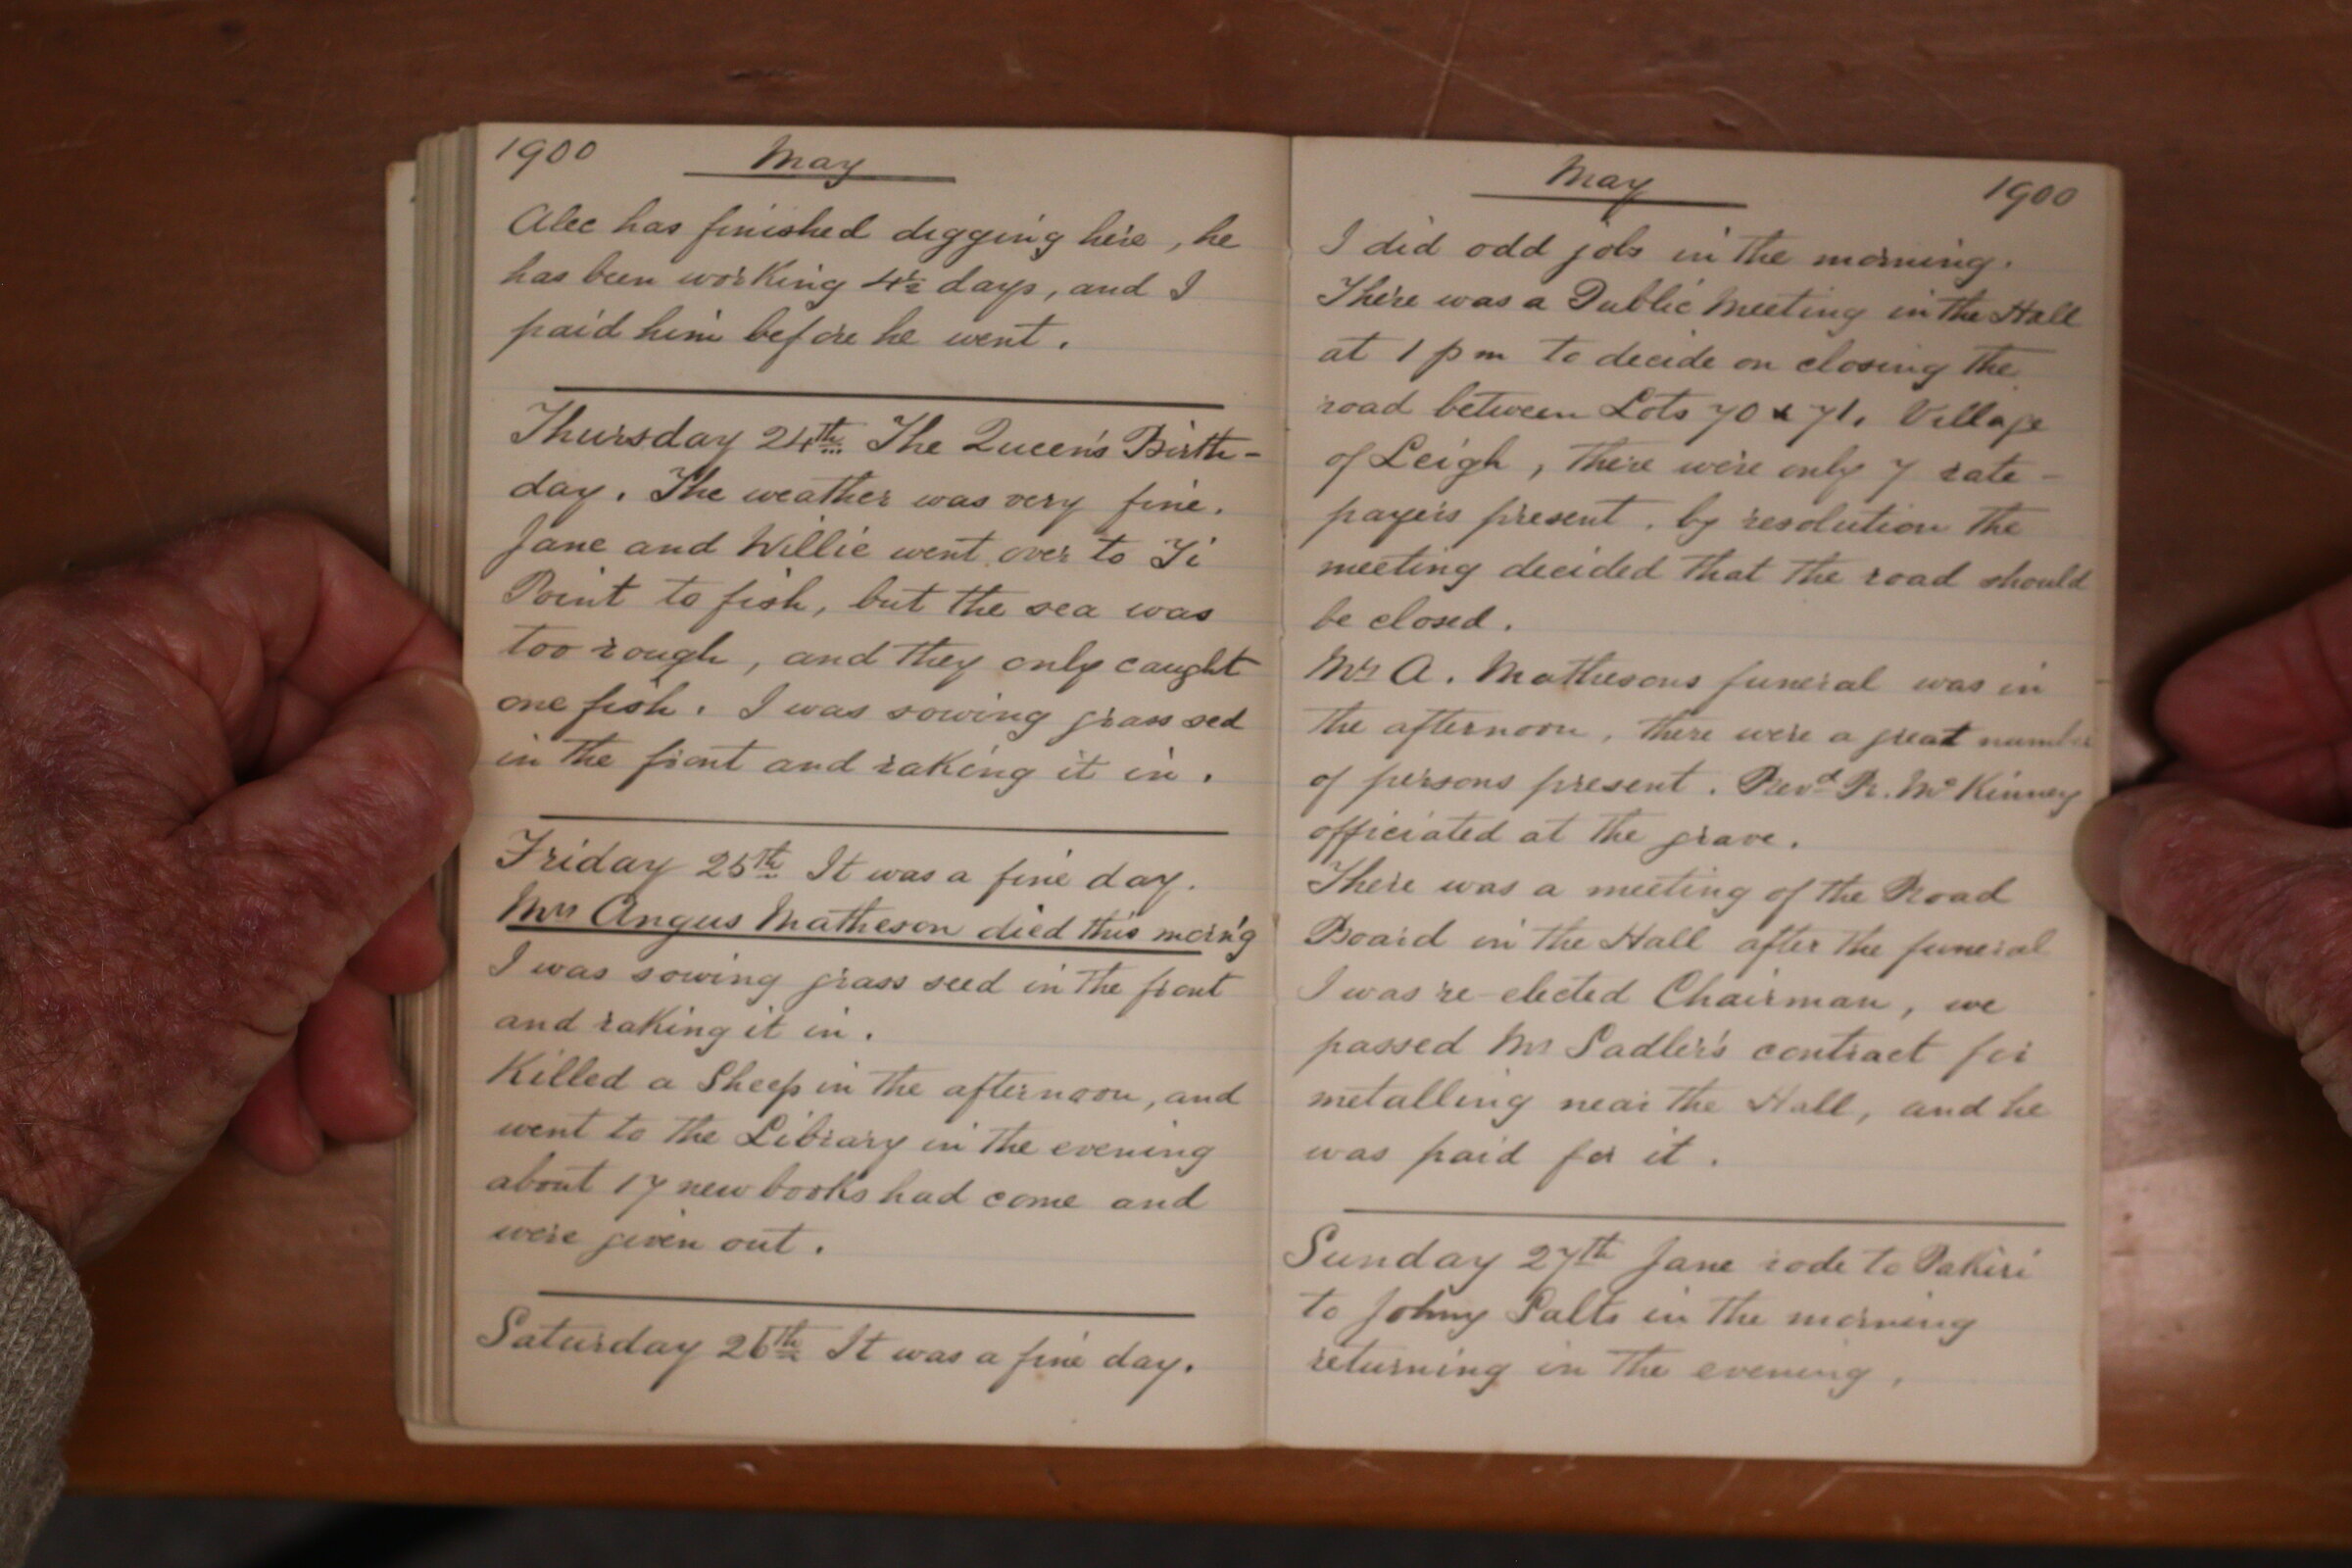 1900 May
Alec has finished digging here, he
has been working 4½ days, and I
paid him before he went.
Thursday 24th The Queen's Birth-
day. The weather was very fine.
Jane and Willie went over to Ti
Point to fish, but the sea was
too rough, and they only caught
one fish. I was sowing grass sed
in the front and raking it in.
Friday 25th It was a fine day.
Mrs Angus Matheson died this morn'g
I was sowing grass seed in the front
and raking it in.
Killed a Sheep in the afternoon, and
went to the Library in the evening
about 17 new books had come and
were given out.
Saturday 26th It was a fine day.
May 1900
I did odd jobs in the morning.
There was a Public Meeting in the Hall
at 1 pm to decide on closing the
road between Lots 70 & 71. Village
of Leigh, there were only 7 rate-
payers present. by resolution the
meeting decided that the road should
be closed.
Mrs A. Mathesons funeral was in
the afternoon, there were a great number
of persons present. Revd R. McKinney
officiated at the grave.
There was a meeting of the Road
Board in the Hall after the funeral
I was re-elected Chairman, we
passed Mr Sadler's contract for
metalling near the Hall, and he
was paid for it.
Sunday 27th Jane rode to Pakiri
to Johny Salts in the morning
returning in the evening.